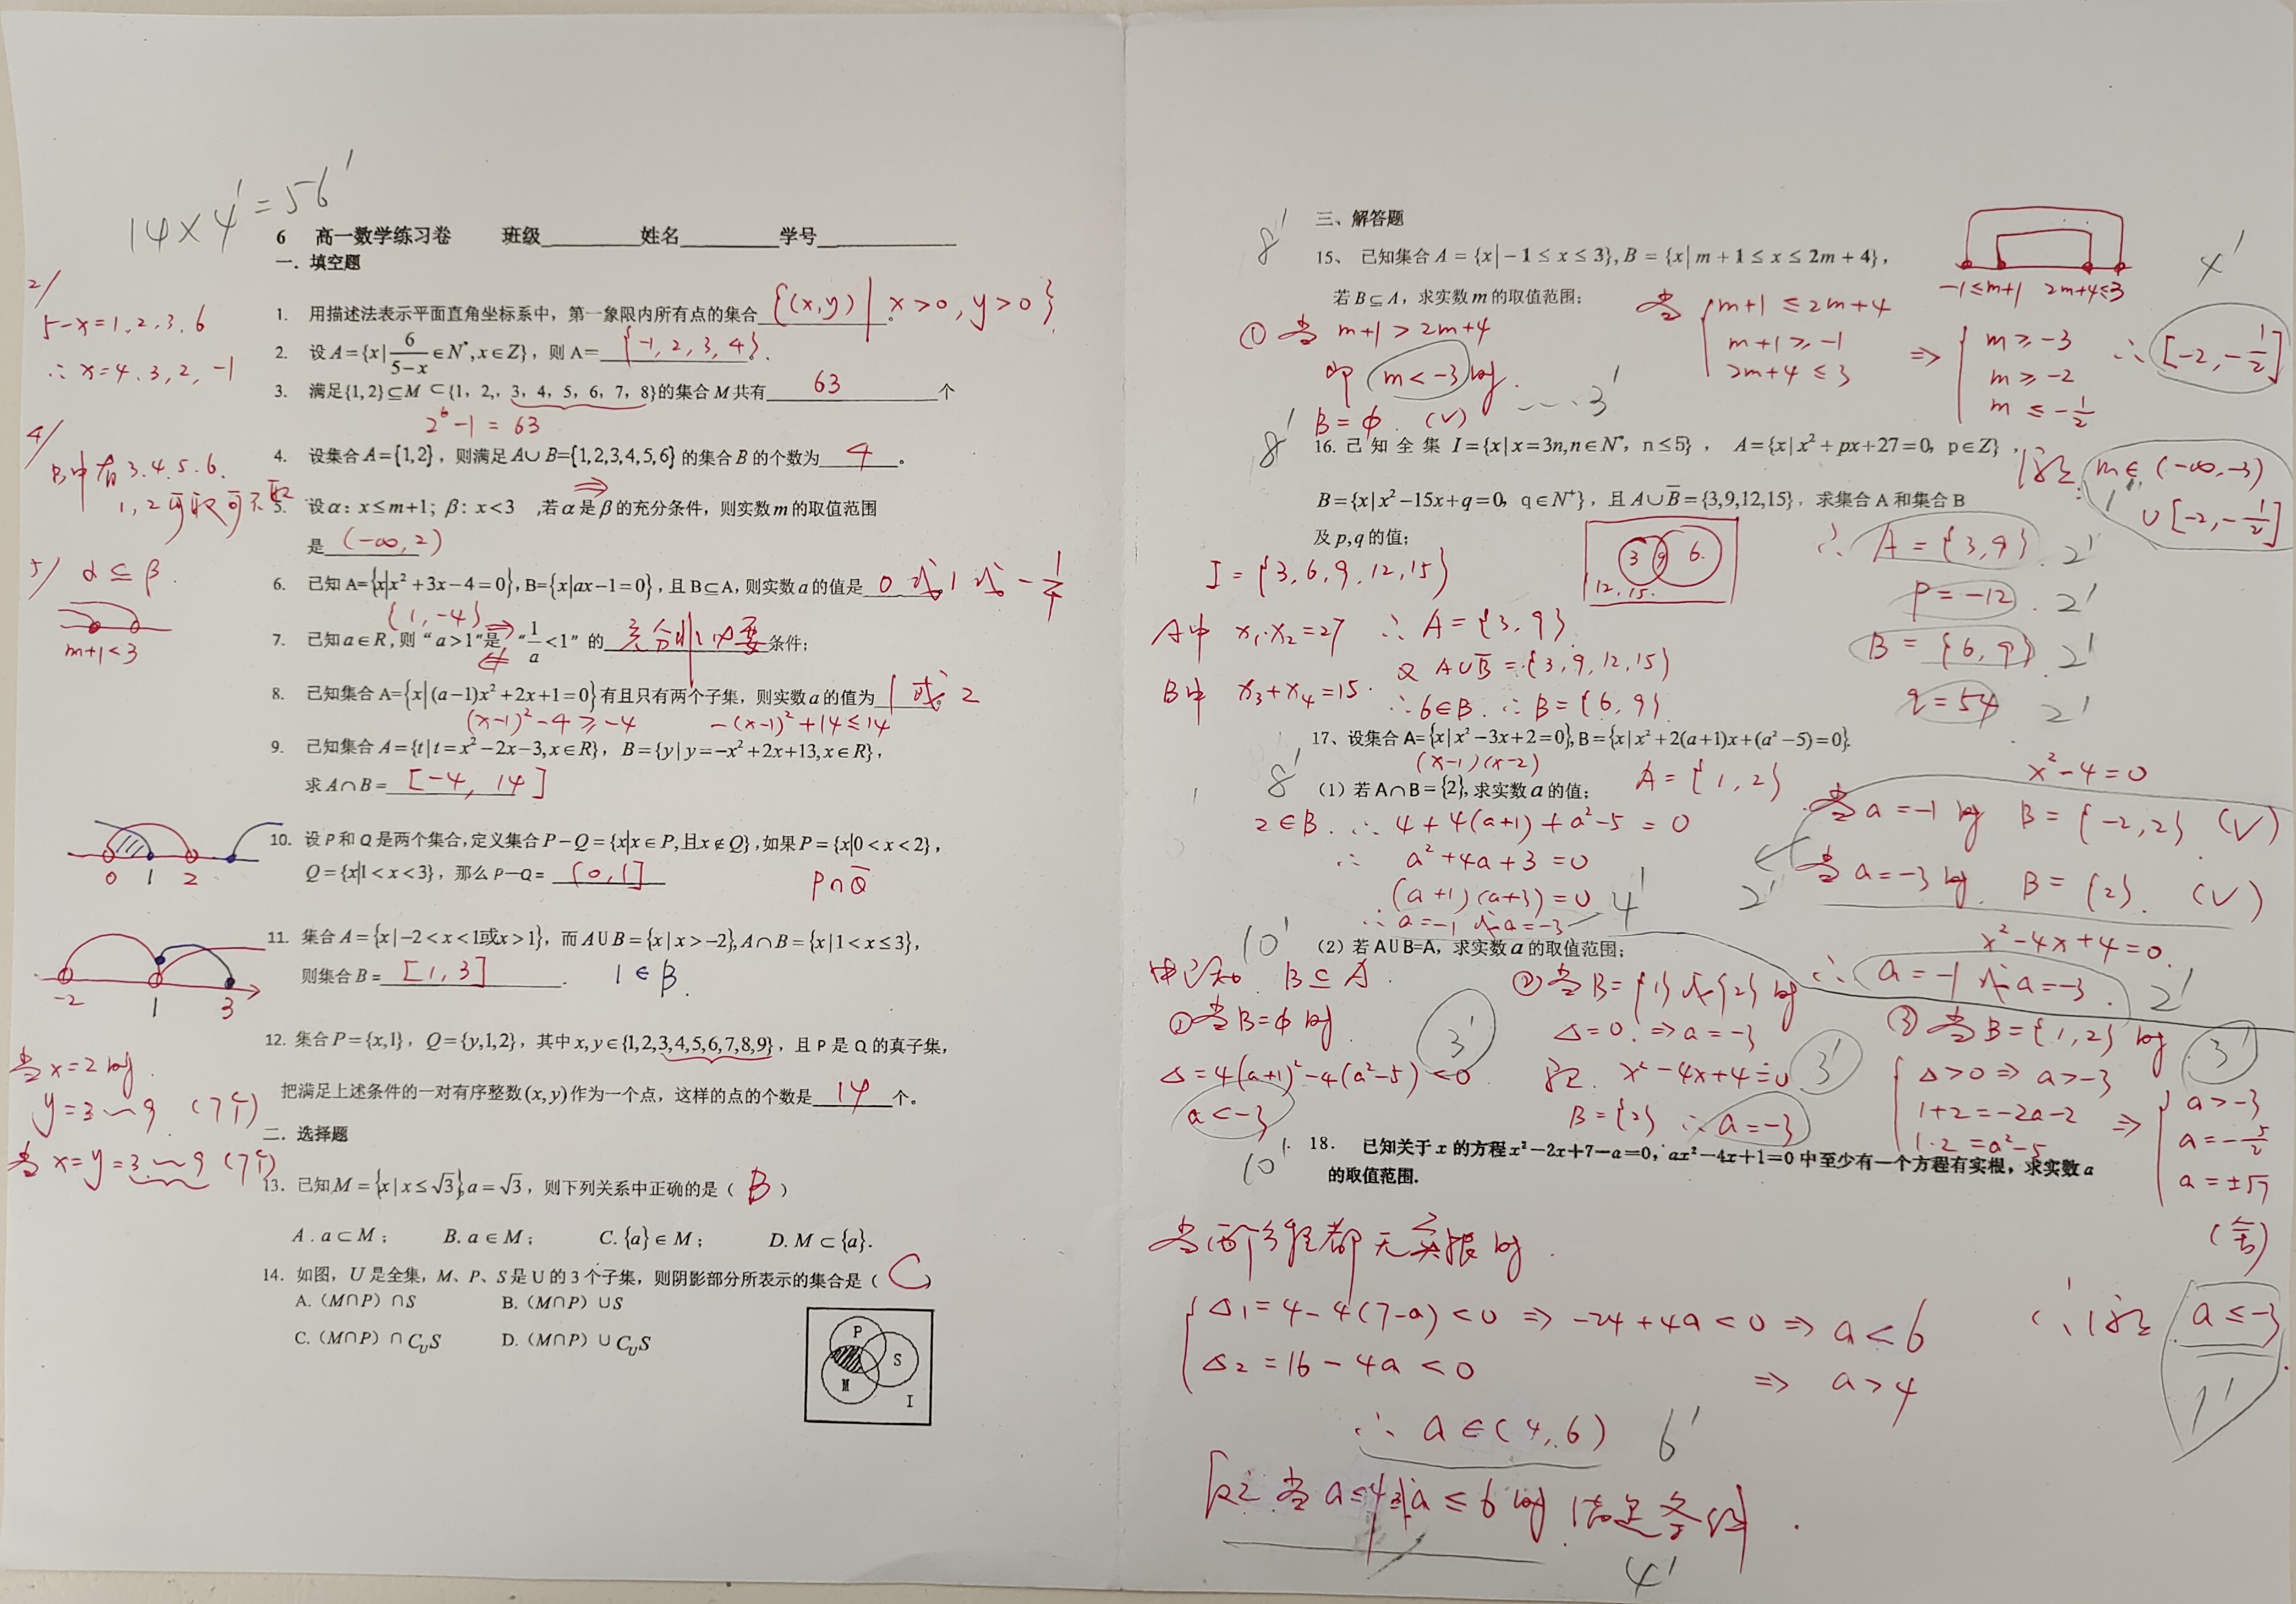 14×4'=56'
6 高一数学练习卷 班级________姓名________学号________
一. 填空题
1. 用描述法表示平面直角坐标系中，第一象限内所有点的集合 {(x,y)| x>0, y>0}。
2/
5-x=1,2,3,6
∴ x=4,3,2,-1
2. 设A={x|6/(5-x)∈N*,x∈Z}，则A= {-1,2,3,4}.
3. 满足{1,2}⊆M⊂{1，2,，3，4，5，6，7，8}的集合M共有 63 个
2^6-1=63
4/
B中有3.4.5.6.
1,2可取可不取
4. 设集合A={1,2}，则满足A∪B={1,2,3,4,5,6}的集合B的个数为 4 。
⇒
5. 设α: x≤m+1; β: x<3 ,若α是β的充分条件，则实数m的取值范围
是 (-∞,2)
5/ α⊆β.
m+1<3
6. 已知A={x|x²+3x-4=0},B={x|ax-1=0}，且B⊆A, 则实数a的值是 0或1或-1/4
{1,-4}
7. 已知a∈R, 则“a>1”是“1/a<1”的 充分非必要 条件;
8. 已知集合A={x|(a-1)x²+2x+1=0}有且只有两个子集，则实数a的值为 1或2
(x-1)²-4≥-4 -(x-1)²+14≤14
9. 已知集合A={t|t=x²-2x-3,x∈R}，B={y|y=-x²+2x+13,x∈R},
求A∩B= [-4, 14]
10. 设P和Q是两个集合,定义集合P-Q={x|x∈P,且x∉Q},如果P={x|0<x<2},
Q={x|1<x<3}，那么P-Q= (0,1] P∩Q̄
0 1 2
11. 集合A={x|-2<x<1或x>1}，而A∪B={x|x>-2},A∩B={x|1<x≤3},
则集合B= [1,3] . 1∈B.
-2 1 3
12. 集合P={x,1}，Q={y,1,2}，其中x,y∈{1,2,3,4,5,6,7,8,9}，且P是Q的真子集，
把满足上述条件的一对有序整数(x,y)作为一个点，这样的点的个数是 14 个。
当x=2时.
y=3~9 (7个)
当x=y=3~9 (7个)
二. 选择题
13. 已知M={x|x≤√3},a=√3，则下列关系中正确的是（ B ）
A. a⊂M； B. a∈M； C. {a}∈M； D. M⊂{a}.
14. 如图，U是全集，M、P、S是U的3个子集，则阴影部分所表示的集合是（ C ）
A.（M∩P）∩S B.（M∩P）∪S
C.（M∩P）∩C_US D.（M∩P）∪C_US
P
S
M
I
三、解答题
8'
15、 已知集合A={x|-1≤x≤3},B={x|m+1≤x≤2m+4},
若B⊆A，求实数m的取值范围;
-1≤m+1 2m+4≤3
4'
① 当 m+1>2m+4
即 m<-3时.
B=∅ (√) ----3'
当 { m+1≤2m+4
m+1≥-1
2m+4≤3
⇒ { m≥-3
m≥-2
m≤-1/2
∴ [-2,-1/2]
综上 m∈(-∞,-3)
∪[-2,-1/2]
1'
8'
16. 已知全集 I={x|x=3n,n∈N*, n≤5}， A={x|x²+px+27=0, p∈Z}，
B={x|x²-15x+q=0, q∈N⁺}，且A∪B̄={3,9,12,15}，求集合A和集合B
及p,q的值;
I={3,6,9,12,15}
3 9 6.
12.15.
A中 x₁·x₂=27 ∴ A={3,9}
又 A∪B̄={3,9,12,15}
B中 x₃+x₄=15. ∴6∈B. ∴B={6,9}
∴ A={3,9}. 2'
p=-12. 2'
B={6,9} 2'
q=54 2'
17、设集合A={x|x²-3x+2=0},B={x|x²+2(a+1)x+(a²-5)=0}.
(x-1)(x-2)
8'
（1）若A∩B={2}, 求实数a的值; A={1,2}
2∈B. ∴ 4+4(a+1)+a²-5=0
∴ a²+4a+3=0
(a+1)(a+3)=0
∴ a=-1或a=-3 4'
x²-4=0
当a=-1时 B={-2,2} (√)
当a=-3时. B={2}. (√)
2'
x²-4x+4=0.
∴ a=-1或a=-3. 2'
10'
（2）若A∪B=A，求实数a的取值范围;
由已知 B⊆A.
①当B=∅时.
Δ=4(a+1)²-4(a²-5)<0
a<-3
3'
②当B={1}或{2}时
Δ=0. ⇒a=-3
x²-4x+4=0
B={2} ∴a=-3
3'
③当B={1,2}时
{ Δ>0⇒a>-3
1+2=-2a-2
1·2=a²-5
⇒ { a>-3
a=-5/2
a=±√7
(舍)
3'
∴综上 a≤-3
1'
10'
18. 已知关于x的方程x²-2x+7-a=0，ax²-4x+1=0中至少有一个方程有实根，求实数a
的取值范围.
当两个方程都无实根时.
{ Δ₁=4-4(7-a)<0 ⇒ -24+4a<0 ⇒ a<6
Δ₂=16-4a<0 ⇒ a>4
∴ a∈(4,6) 6'
反之 当a≤4或a≤6时 满足条件.
4'